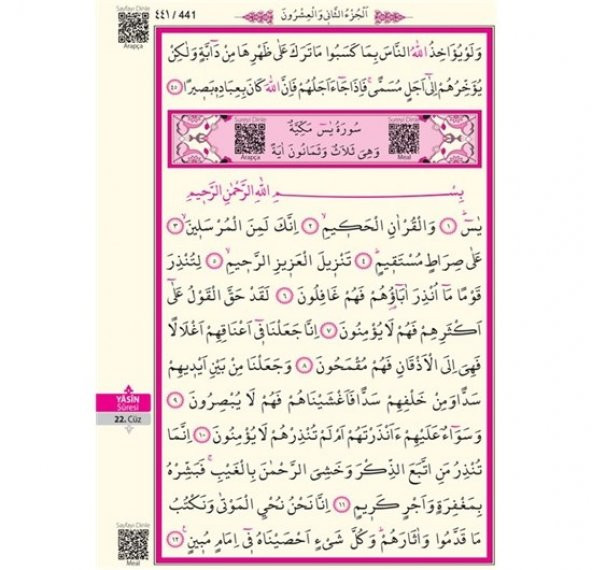 Sayfayı Dinle
٤٤١ / 441
اَلْجُزْءُ الثَّانِي وَالْعِشْرُونَ
Arapça
وَلَوْ يُؤَاخِذُ اللّٰهُ النَّاسَ بِمَا كَسَبُوا مَا تَرَكَ عَلٰى ظَهْرِهَا مِنْ دَٓابَّةٍ وَلٰكِنْ
يُؤَخِّرُهُمْ اِلٰٓى اَجَلٍ مُسَمًّىۚ فَاِذَا جَٓاءَ اَجَلُهُمْ فَاِنَّ اللّٰهَ كَانَ بِعِبَادِه۪ بَص۪يرًا ٤٥
Sureyi Dinle
سُورَةُ يٰسٓ مَكِّيَّةٌ
Sureyi Dinle
Arapça
وَهِيَ ثَلَاثٌ وَثَمَانُونَ اٰيَةً
Meal
بِسْــــــمِ اللّٰهِ الرَّحْمٰنِ الرَّح۪يمِ
يٰسٓۜ ١ وَالْقُرْاٰنِ الْحَك۪يمِۙ ٢ اِنَّكَ لَمِنَ الْمُرْسَل۪ينَۙ ٣
عَلٰى صِرَاطٍ مُسْتَق۪يمٍۜ ٤ تَنْز۪يلَ الْعَز۪يزِ الرَّح۪يمِۙ ٥ لِتُنْذِرَ
قَوْمًا مَٓا اُنْذِرَ اٰبَٓاؤُ۬هُمْ فَهُمْ غَافِلُونَ ٦ لَقَدْ حَقَّ الْقَوْلُ عَلٰٓى
اَكْثَرِهِمْ فَهُمْ لَا يُؤْمِنُونَ ٧ اِنَّا جَعَلْنَا ف۪ٓي اَعْنَاقِهِمْ اَغْلَالًا
فَهِيَ اِلَى الْاَذْقَانِ فَهُمْ مُقْمَحُونَ ٨ وَجَعَلْنَا مِنْ بَيْنِ اَيْد۪يهِمْ
سَدًّا وَمِنْ خَلْفِهِمْ سَدًّا فَاَغْشَيْنَاهُمْ فَهُمْ لَا يُبْصِرُونَ ٩
YÂSÎN
Sûresi
22. Cüz
وَسَوَٓاءٌ عَلَيْهِمْ ءَاَنْذَرْتَهُمْ اَمْ لَمْ تُنْذِرْهُمْ لَا يُؤْمِنُونَ ١٠ اِنَّمَا
تُنْذِرُ مَنِ اتَّبَعَ الذِّكْرَ وَخَشِيَ الرَّحْمٰنَ بِالْغَيْبِۚ فَبَشِّرْهُ
بِمَغْفِرَةٍ وَاَجْرٍ كَر۪يمٍ ١١ اِنَّا نَحْنُ نُحْيِ الْمَوْتٰى وَنَكْتُبُ
مَا قَدَّمُوا وَاٰثَارَهُمْۜ وَكُلَّ شَيْءٍ اَحْصَيْنَاهُ ف۪ٓي اِمَامٍ مُب۪ينٍ۟ ١٢
Sayfayı Dinle
Meal